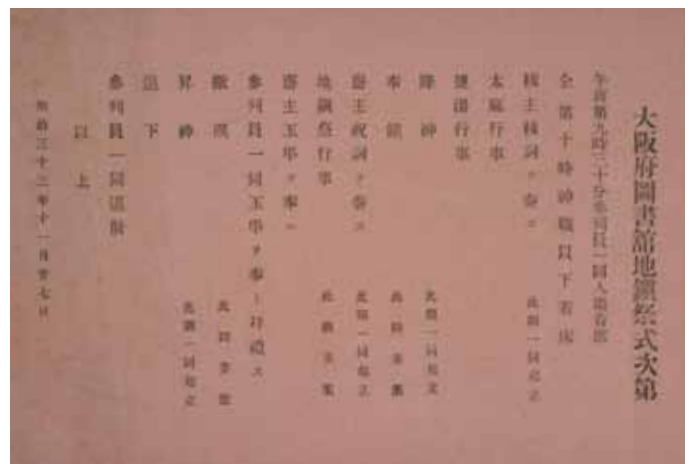 大阪府圖書館地鎭祭式次第
午前第九時三十分參列員一同入場着席
仝第十時神職員下着床
祓主祓詞ヲ奏ス 此間一同起立
大麻行事
塩湯行事
降神 此間一同起立
奉饌 此時奏樂
齋主祝詞ヲ奏ス 此間一同起立
地鎭祭行事 此時奏樂
齋主玉串ヲ奉ル
參列員一同玉串ヲ奉リ拝禮ス
撤饌 此時奏樂
昇神 此間一同起立
退下
參列員一同退散
以上
明治三十三年十一月廿七日